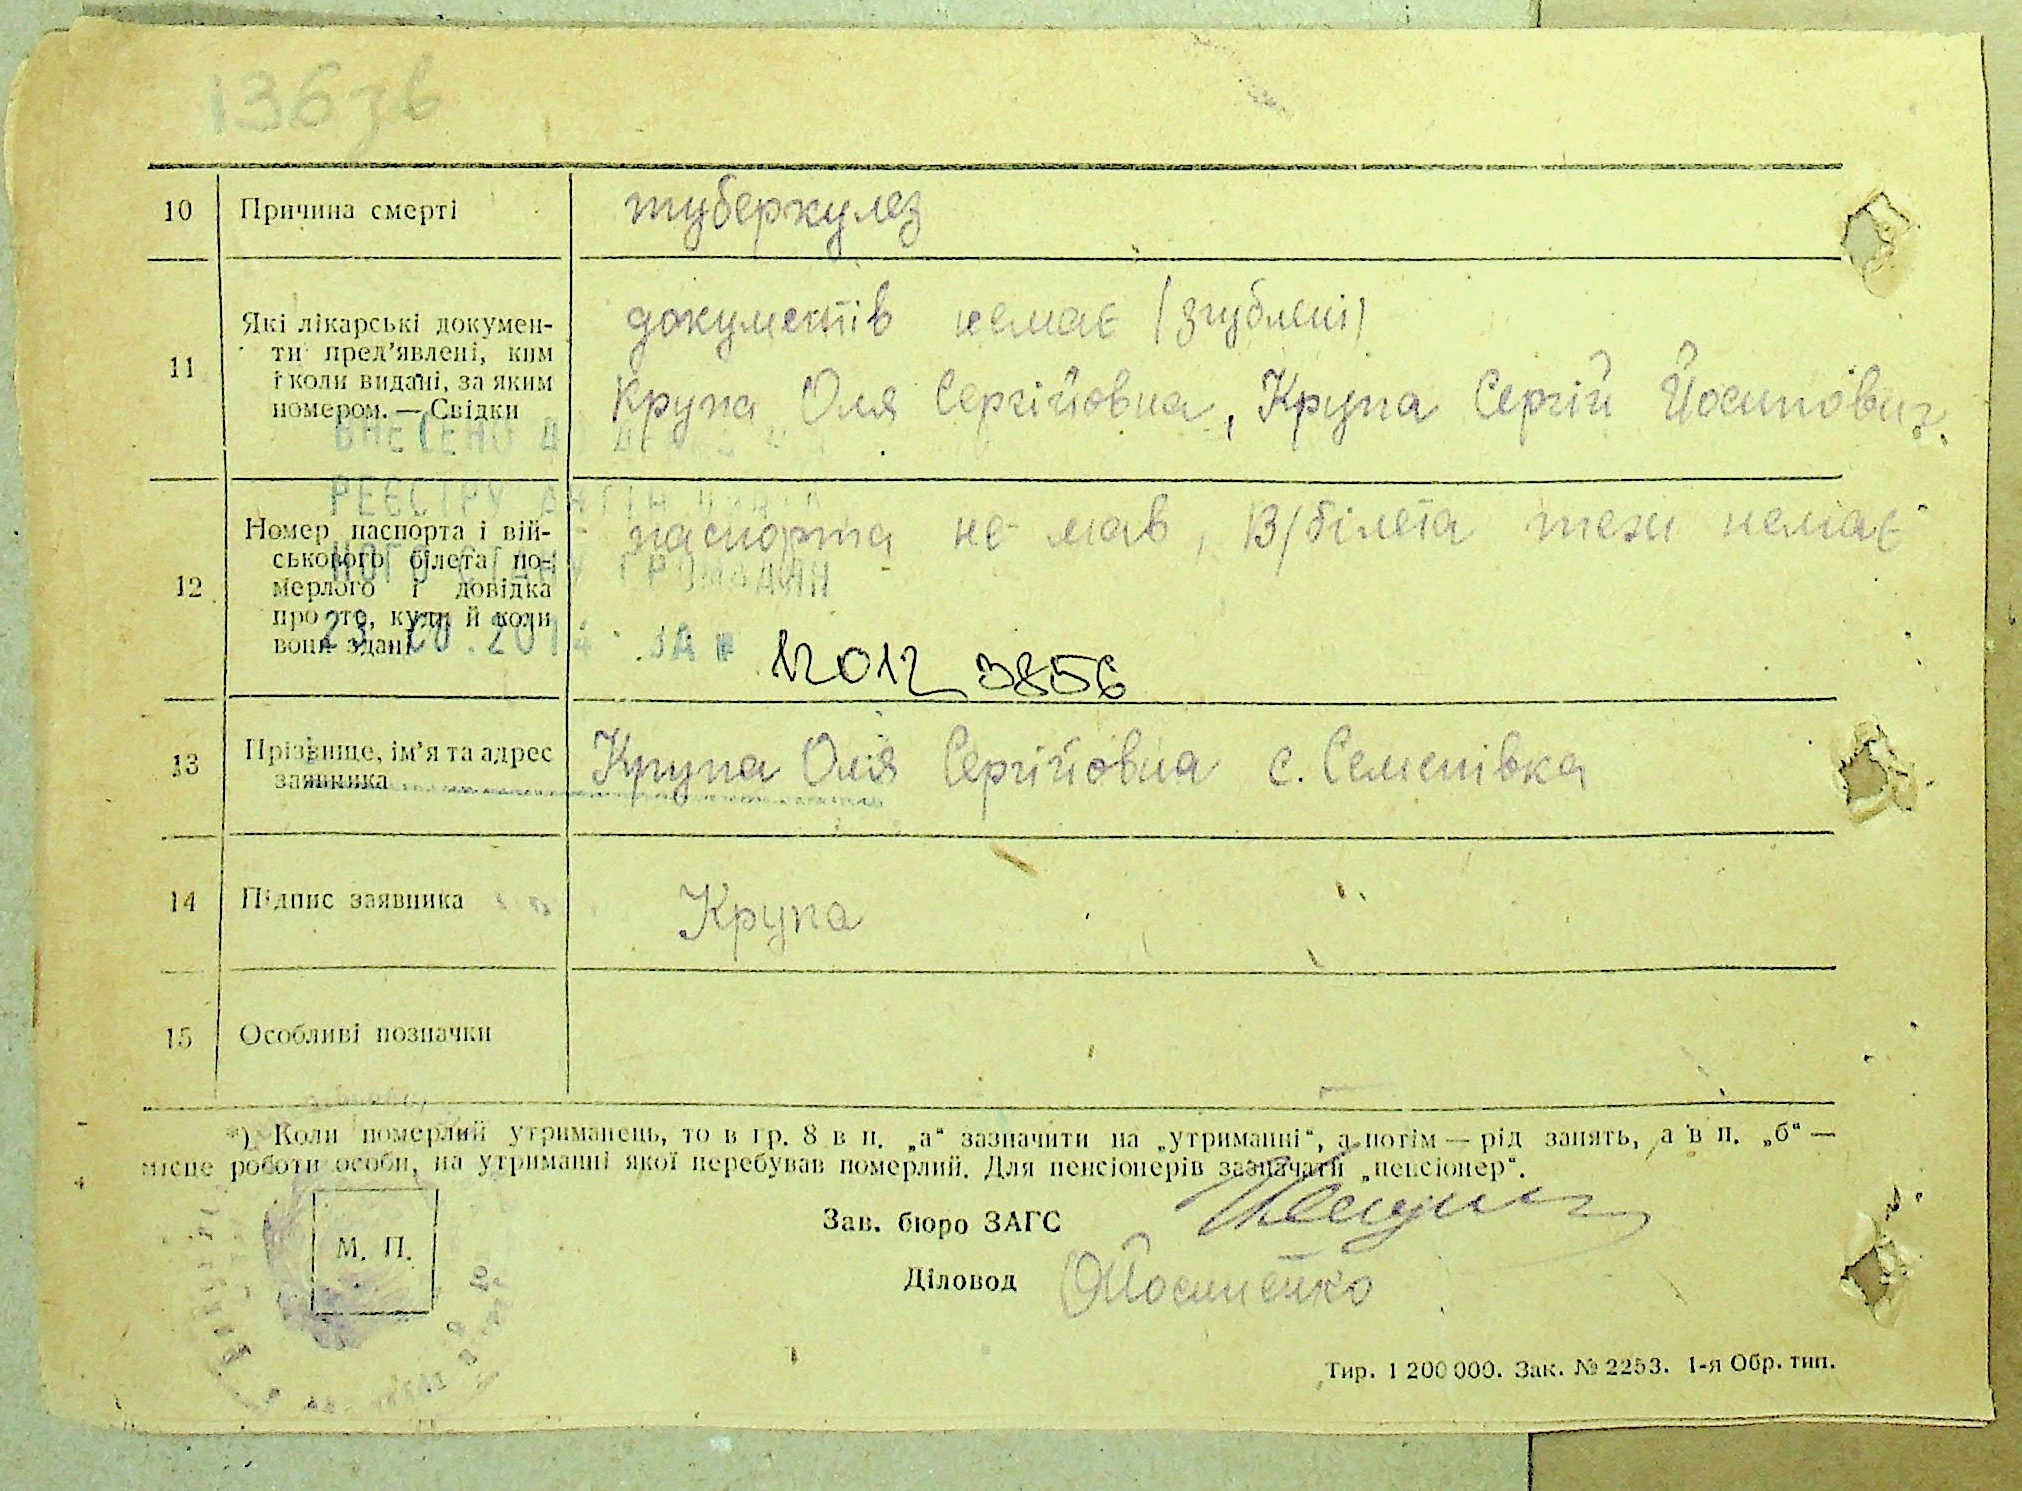 136 зв
10 Причина смерті туберкулез
11 Які лікарські докумен-
ти пред'явлені, ким
і коли видані, за яким
номером. — Свідки
документів немає (згублені)
Крупа Оля Сергійовна, Крупа Сергій Йосипович.
ВНЕСЕНО
РЕЄСТРУ
ГРОМАДЯН
12 Номер паспорта і вій-
ськового білета по-
мерлого і довідка
про те, куди й коли
вони здані
паспорта не мав, в/білета теж немає
ЗА № 12012 3856
13 Прізвище, ім'я та адрес
заявника
Крупа Оля Сергійовна с. Семенівка
14 Підпис заявника Крупа
15 Особливі позначки
*) Коли померлий утриманець, то в гр. 8 в п. „а“ зазначити на „утриманні“, а потім — рід занять, а в п. „б“ —
місце роботи особи, на утриманні якої перебував померлий. Для пенсіонерів зазначати „пенсіонер“.
М. П.
Зав. бюро ЗАГС
Діловод ОЙосипенко
Тир. 1 200 000. Зак. № 2253. 1-я Обр. тип.